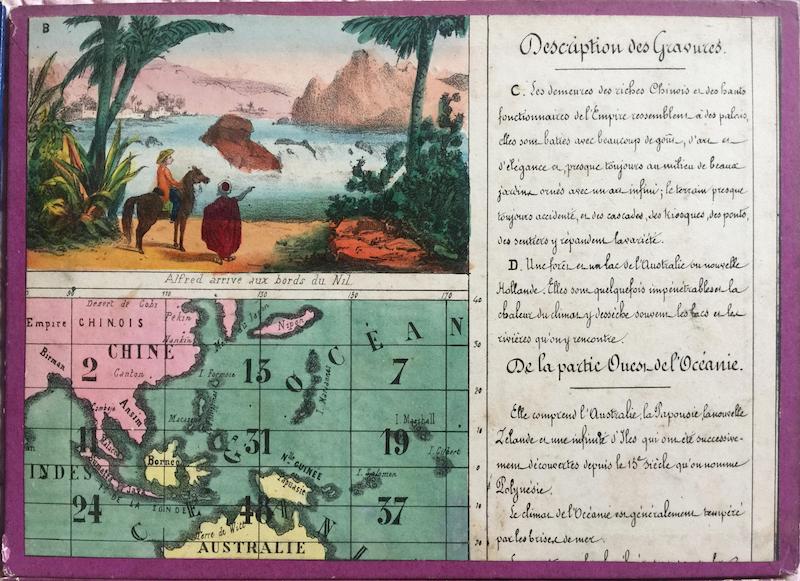 B
Alfred arrive aux bords du Nil.
98 110 130 150 170
Desert de Cobi
Pekin
Mer du Jap
Nipon
40
Empire CHINOIS
Nankin
CHINE
OCÉAN
Birman
2
Canton
I. Formose
13
I. Mariannes
7
30
20
Ansim
Camboje
Macao
I. Marshall
10
11
31
19
I. Gilbert
Malaca
Borneo
Nlle GUINÉE
Papuasie
I. Salomon
0
INDES
Sumatra
DE LA SONDE
24
48
37
10
Terre de Witt
AUSTRALIE
20
Description des Gravures.
C. Les demeures des riches Chinois et des hauts
fonctionnaires de l'Empire ressemblent à des palais,
elles sont baties avec beaucoup de goût, d'art et
d'élégance et, presque toujours au milieu de beaux
jardins ornés avec un art infini; le terrain presque
toujours accidenté, et des cascades, des kiosques, des ponts,
des sentiers y répandent la variété.
D. Une forêt et un lac de l'Australie ou nouvelle
Hollande. Elles sont quelquefois impénétrables et la
chaleur du climat y dessèche souvent les lacs et les
rivières qu'on y rencontre.
De la partie Ouest de l'Océanie.
Elle comprend l'Australie, la Papousie la nouvelle
Zélande et une infinité d'Iles qui ont été successive-
ment découvertes depuis le 15e siècle qu'on nomme
Polynésie.
Le climat de l'Océanie est généralement tempéré
par les brises de mer.